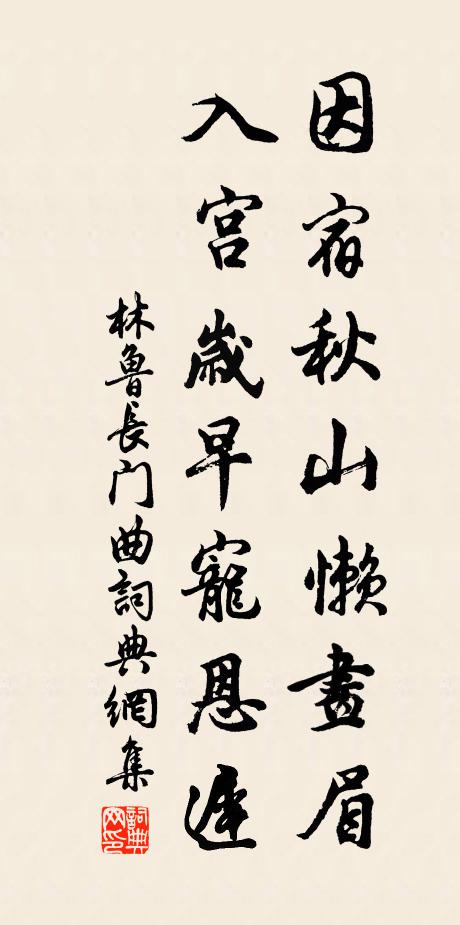 因宿秋山懶畫眉
入宮歲早寵恩遲
林魯長門曲詞典網集
詞典
网印